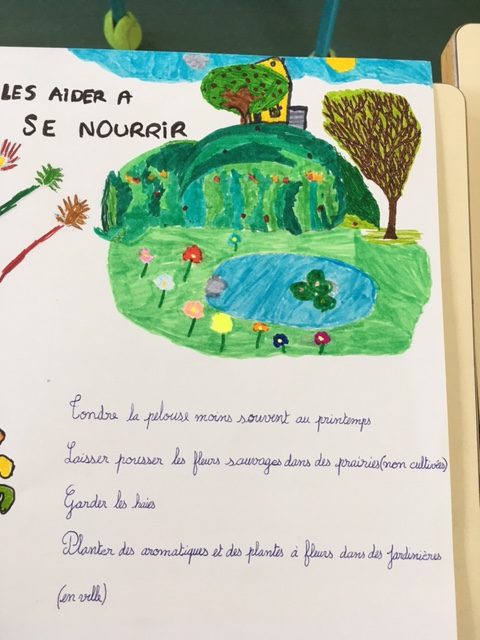 LES AIDER A
SE NOURRIR
Tondre la pelouse moins souvent au printemps
Laisser pousser les fleurs sauvages dans des prairies (non cultivées)
Garder les haies
Planter des aromatiques et des plantes à fleurs dans des jardinières
(en ville)